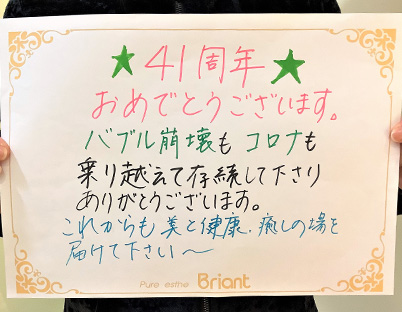 ★41周年★
おめでとうございます。
バブル崩壊も コロナも
乗り越えて存続して下さり
ありがとうございます。
これからも美と健康、癒しの場を
届けて下さい〜
Pure esthe Briant